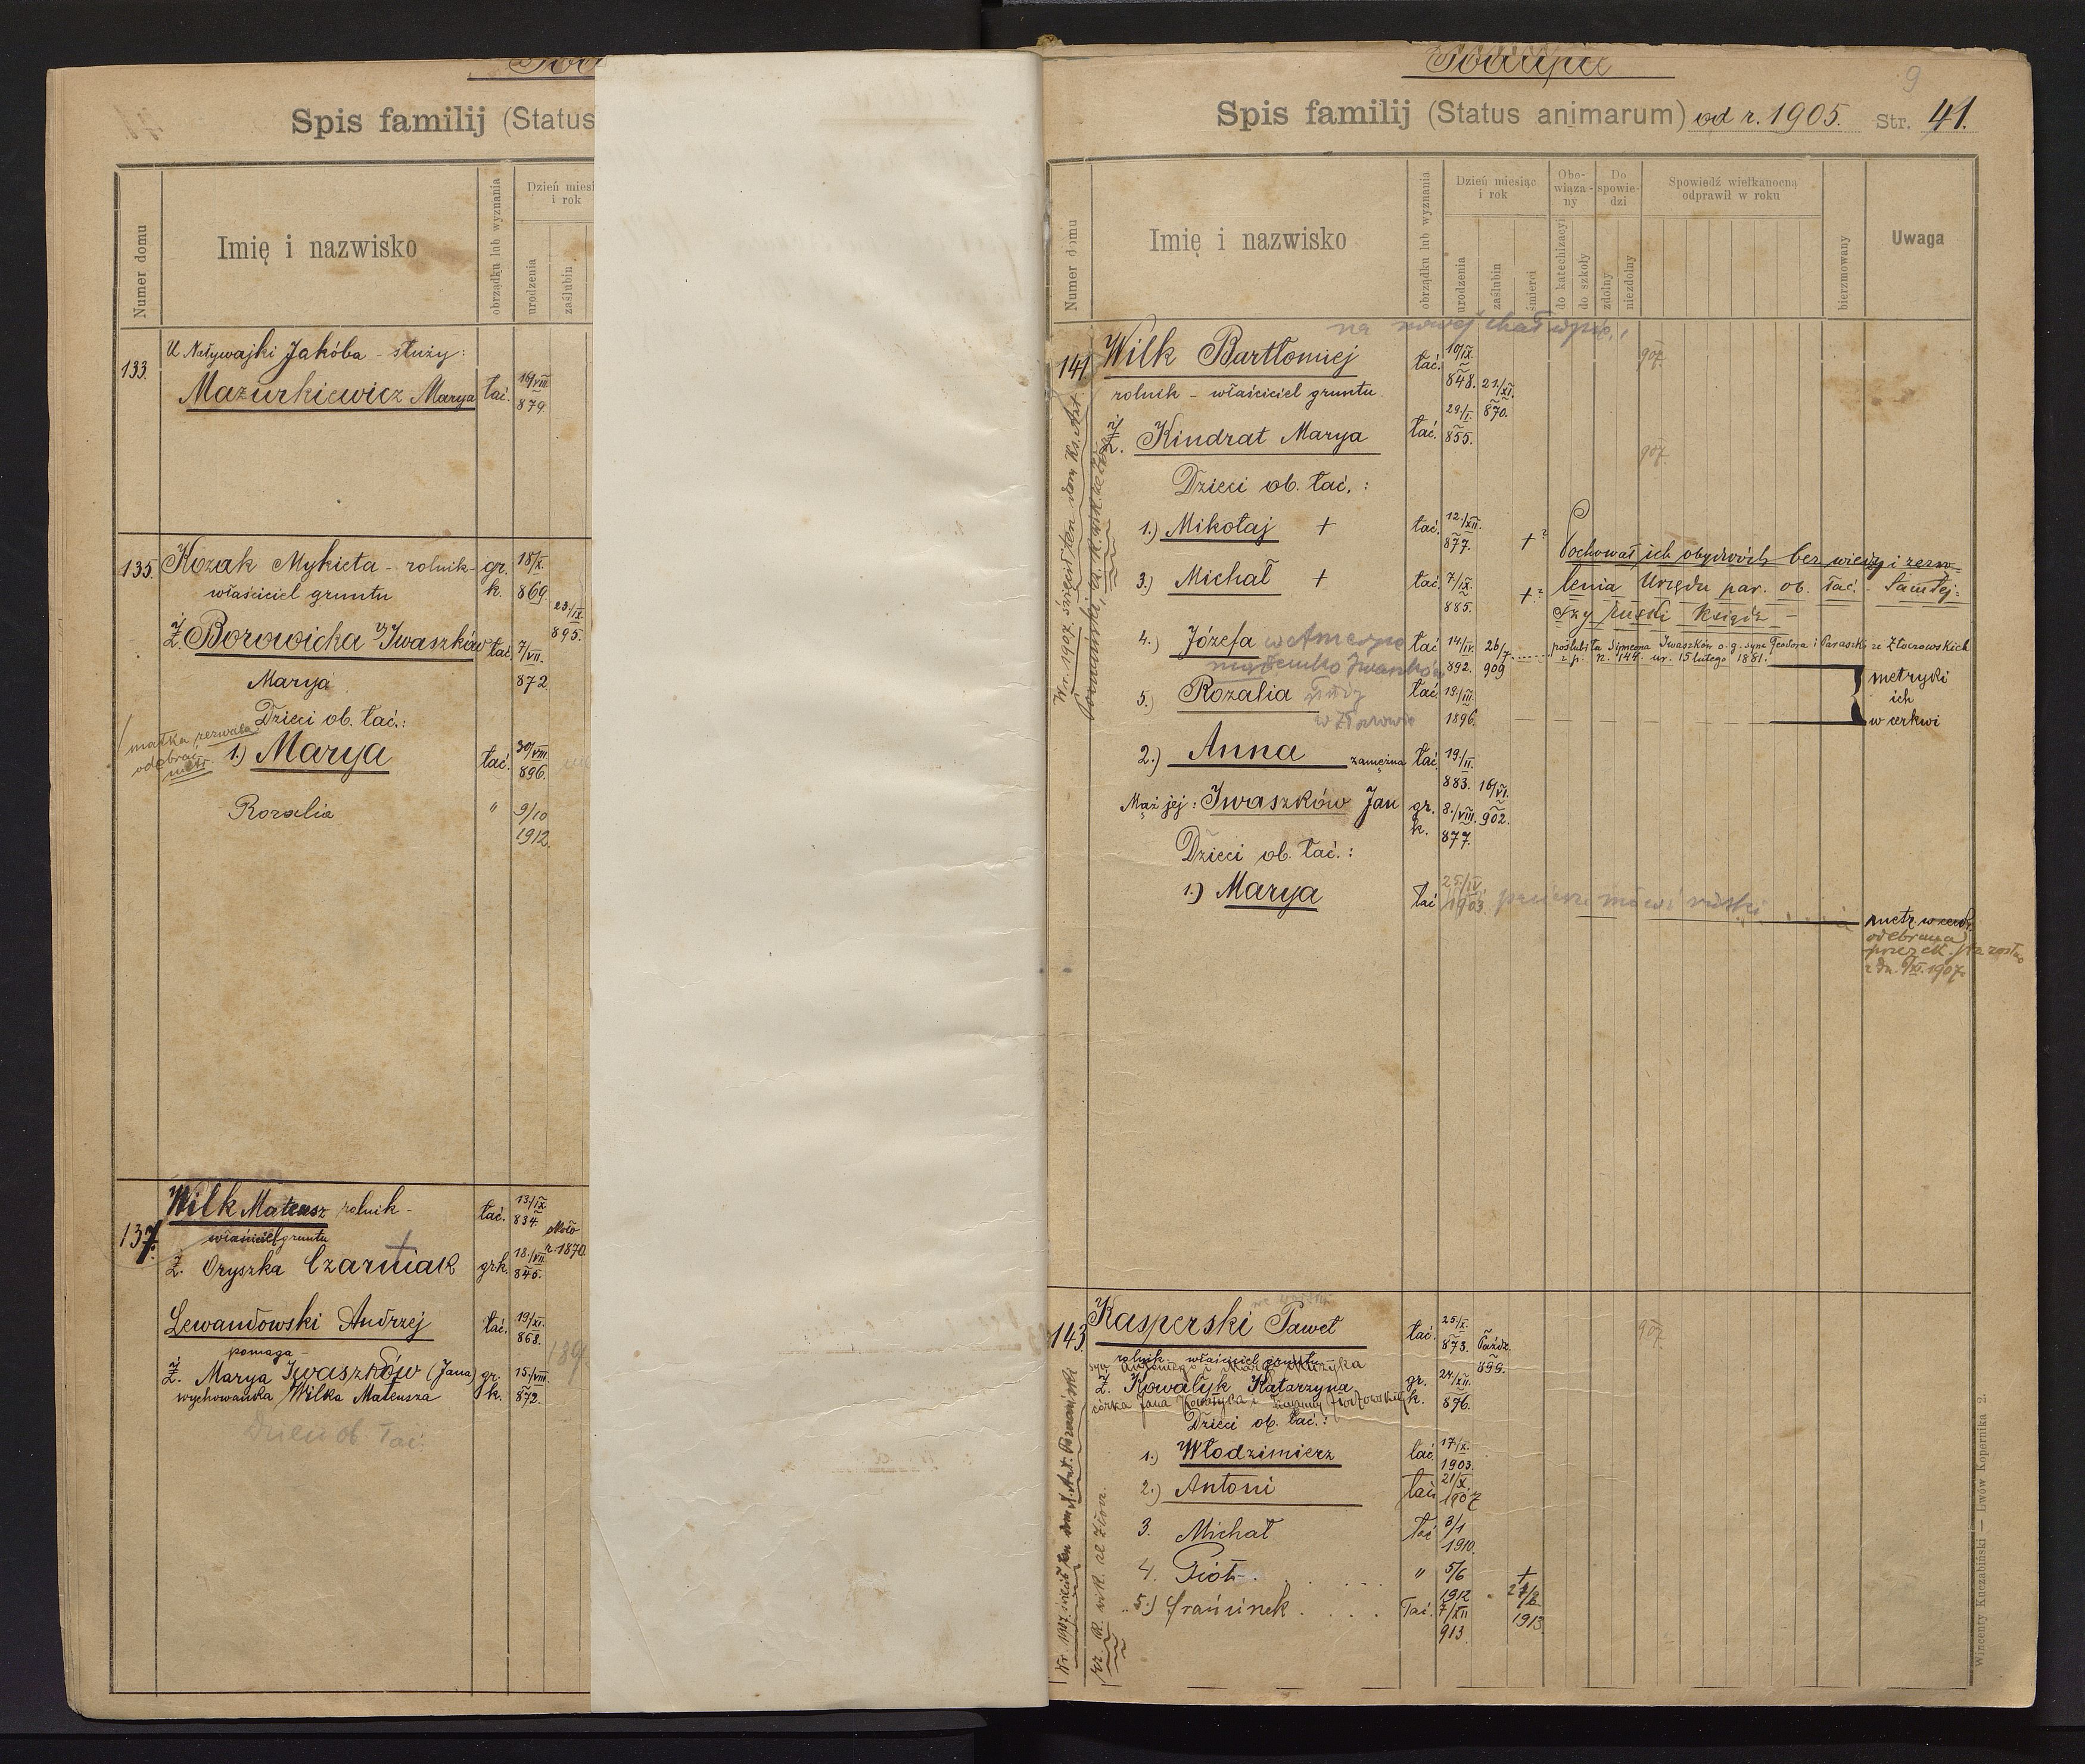 Spis familij (Status
Numer domu
Imię i nazwisko
obrządku lub wyznania
Dzień miesi
i rok
urodzenia
zaślubin
133.
U Naływajki Jakóba - służy:
Mazurkiewicz Marya łać. 16/VIII. 879.
135.
Kozak Mykieta - rolnik - gr. k. 18/X. 869.
właściciel gruntu
23/IX. 895.
Ż. Borowicka Iwaszków łać. 7/VII. 872
Marya
Dzieci ob. łać.:
matka
odebrać
metr.
1.) Marya łać. 30/VIII. 896.
Rozalia " 9/10 1912.
137.
Wilk Mateusz rolnik - łać. 13./IX. 834.
właściciel gruntu
około r. 1870.
Ż. Oryszka Czarniak grk. 18./VII. 845.
Lewandowski Andrzej łać. 19/XI. 868.
pomaga
Ż. Marya Iwaszków (Jana) gr. k. 15./VIII. 872.
wychowanka Wilka Mateusza
Dzieci ob łać.
9
Spis familij (Status animarum) od r. 1905. Str. 41.
Numer domu
Imię i nazwisko
obrządku lub wyznania
Dzień miesiąc
i rok
urodzenia
zaślubin
śmierci
Obo-
wiąza-
ny
do katechizacyi
do szkoły
Do
spowie-
dzi
zdolny
niezdolny
Spowiedź wielkanocną
odprawił w roku
bierzmowany
Uwaga
na nowej chałupie
141.
Wilk Bartłomiej łać. 10/IX. 848. 907.
rolnik - właściciel gruntu 21/XI. 870.
Ż. Kindrat Marya łać. 29/I. 855. 907.
Dzieci ob. łać.:
1.) Mikołaj + łać. 12./XII. 877. +?
Pochował ich obydwóch bez wiedzy i zezwo-
3.) Michał + łać. 7/IX. 885. +?
lenia Urzędu par. ob. łać. - tamtej-
szy ruski ksiądz -
4.) Józefa w Ameryce łać 14/IV. 892. 26/7 909
poślubiła Symeona Iwaszków o. g. syna Teodora i Paraski ze Złoczowskich
z p. n. 144. ur. 15 lutego 1881.
5.) Rozalia służy łać. 19./III. 1896.
metryki
ich
w cerkwi
2.) Anna zamężna łać. 19/II. 883. 16/VI. 902.
Mąż jej: Iwaszków Jan gr. k. 8./VIII. 877.
Dzieci ob. łać.:
1.) Marya łać 25/IV. 1903. pacierz mówi ruski
metr. w cerk.
odebrana
przez
z dn. 1907.
W r. 1907. święcił ten dom Ks. Ant.
Poznański
143.
Kasperski Paweł łać. 25/X. 873. Paźdz. 899. 907.
rolnik - właściciel gruntu
syn Antoniego i Maryi Muzyka
Ż. Kowalyk Katarzyna gr. k. 24/XII. 876.
córka Jana Kowalyka i
Dzieci ob. łać.:
1.) Włodzimierz łać. 17/X. 1903.
2.) Antoni łać. 21/X. 1907
3. Michał łać 3/1 1910.
4. Piotr. " 5/6 1912 + 27/2 1913.
5.) Franciszek łać. 7/XII 913.
W r. 1907. święcił ten dom X. Ant. Poznański
Wincenty Kuczabiński — Lwów Kopernika 2.